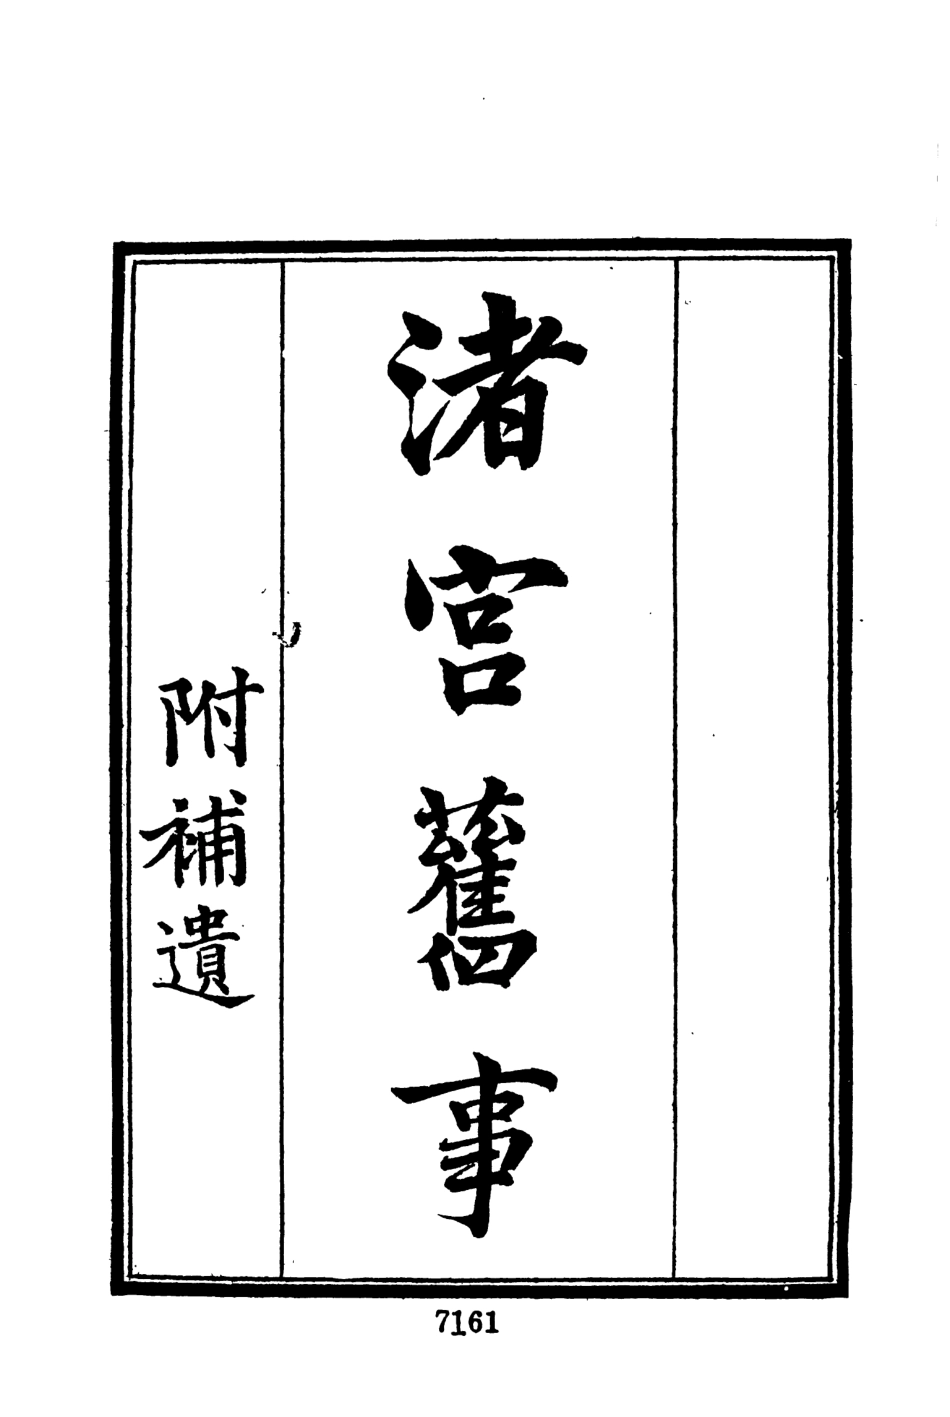 渚宮舊事
附補遺
7161